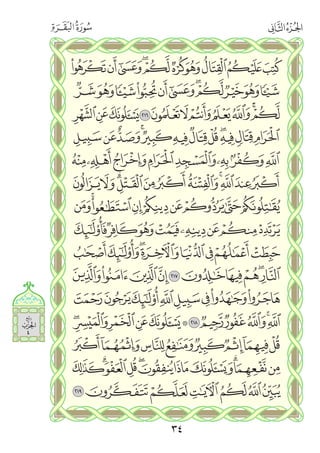 الجُزْءُ الثَّانِي
سُورَةُ البَقَرَةِ
كُتِبَ عَلَيْكُمُ ٱلْقِتَالُ وَهُوَ كُرْهٌ لَّكُمْ ۖ وَعَسَىٰٓ أَن تَكْرَهُوا۟
شَيْـًٔا وَهُوَ خَيْرٌ لَّكُمْ ۖ وَعَسَىٰٓ أَن تُحِبُّوا۟ شَيْـًٔا وَهُوَ شَرٌّ
لَّكُمْ ۗ وَٱللَّهُ يَعْلَمُ وَأَنتُمْ لَا تَعْلَمُونَ ٢١٦ يَسْـَٔلُونَكَ عَنِ ٱلشَّهْرِ
ٱلْحَرَامِ قِتَالٍ فِيهِ ۖ قُلْ قِتَالٌ فِيهِ كَبِيرٌ ۖ وَصَدٌّ عَن سَبِيلِ
ٱللَّهِ وَكُفْرٌۢ بِهِۦ وَٱلْمَسْجِدِ ٱلْحَرَامِ وَإِخْرَاجُ أَهْلِهِۦ مِنْهُ
أَكْبَرُ عِندَ ٱللَّهِ ۚ وَٱلْفِتْنَةُ أَكْبَرُ مِنَ ٱلْقَتْلِ ۗ وَلَا يَزَالُونَ
يُقَـٰتِلُونَكُمْ حَتَّىٰ يَرُدُّوكُمْ عَن دِينِكُمْ إِنِ ٱسْتَطَـٰعُوا۟ ۚ وَمَن
يَرْتَدِدْ مِنكُمْ عَن دِينِهِۦ فَيَمُتْ وَهُوَ كَافِرٌ فَأُو۟لَـٰٓئِكَ
حَبِطَتْ أَعْمَـٰلُهُمْ فِى ٱلدُّنْيَا وَٱلْـَٔاخِرَةِ ۖ وَأُو۟لَـٰٓئِكَ أَصْحَـٰبُ
ٱلنَّارِ ۖ هُمْ فِيهَا خَـٰلِدُونَ ٢١٧ إِنَّ ٱلَّذِينَ ءَامَنُوا۟ وَٱلَّذِينَ
هَاجَرُوا۟ وَجَـٰهَدُوا۟ فِى سَبِيلِ ٱللَّهِ أُو۟لَـٰٓئِكَ يَرْجُونَ رَحْمَتَ
ٱللَّهِ ۚ وَٱللَّهُ غَفُورٌ رَّحِيمٌ ٢١٨ ۞ يَسْـَٔلُونَكَ عَنِ ٱلْخَمْرِ وَٱلْمَيْسِرِ ۖ
قُلْ فِيهِمَآ إِثْمٌ كَبِيرٌ وَمَنَـٰفِعُ لِلنَّاسِ وَإِثْمُهُمَآ أَكْبَرُ
مِن نَّفْعِهِمَا ۗ وَيَسْـَٔلُونَكَ مَاذَا يُنفِقُونَ قُلِ ٱلْعَفْوَ ۗ كَذَٰلِكَ
يُبَيِّنُ ٱللَّهُ لَكُمُ ٱلْـَٔايَـٰتِ لَعَلَّكُمْ تَتَفَكَّرُونَ ٢١٩
الحزب
٤
٣٤